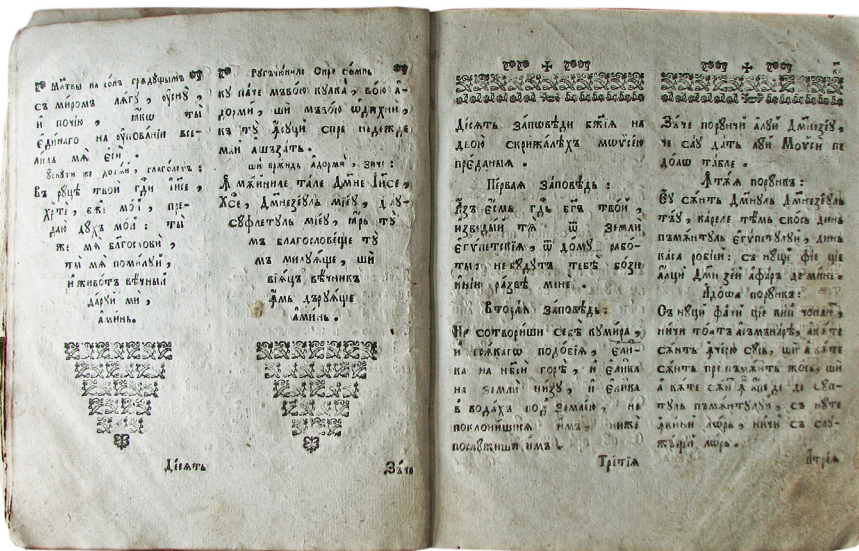 Млтвы на сонъ грядущымъ
съ миромъ лягу, ѹсну,
и почїю, ткѡ ты
единаго на ѹпованїи все-
лилъ мѧ єси.
ѹснути же догли, глаголетъ:
Въ руцѣ твои гдⷭи іисе,
хрⷭте, бж҃е мой, пре-
даю дꙋхъ мой: ты
же мѧ благослови,
ты мѧ помилуй,
и животъ вѣчный
даруй ми,
аминь.
Десять
Ругъчюниле Спре сомнь
кꙋ паче мъвою кꙋлка, вою а-
дорми, ши мъвою ѡдихни,
къ тꙋ спре недежде
май ашъзатъ.
ши връндъ адорми, зиче:
Ꙟ мѫиниле тале Дмⷭне Іисе,
Хсе, Дмнеꙁеꙋль мїеꙋ, дꙋ-
сꙋфлетꙋль мїеꙋ, търь тꙋ
мъ благословеще тꙋ
мъ милꙋяще, ши
вїацъ вѣчникъ
ꙟмь дърꙋаще
аминь.
Зъче
Десять заповѣди бжїя на
двою скрижалѣхъ мѡѵсею
преданыя.
Первая заповѣдь:
Азъ єсмь гдⷭь бгъ твой,
изведый тя ѿ земли
єгѵпетскїя, ѿ дому рабо-
ты: не будутъ тебѣ бози
инїи развѣ мене.
Вторая заповѣдь:
Не сотвориши себѣ кумира,
и всякагѡ подобїя, єли-
ка на нбси горѣ, и єлика
на земли низу, и єлика
в водахъ под землею, не
поклонишися имъ, ниже
послужиши имъ.
Третїя
Зъче порꙋнчи алꙋй Дмнеꙁеꙋ,
че саꙋ датъ лꙋй Моѵси пе
доаѡ табле.
Ꙟтъя порꙋнкъ:
Еꙋ сѫнть Дмнꙋль Дмнеꙁеꙋль
тъꙋ, кареле тѣмь скось динь
пъмѫнтꙋль єгѵпетꙋлꙋй, динь
каса робїей: съ нꙋци фїе цїе
алци Дмнꙁей афаръ де мине.
Адоѡа порꙋнкъ:
Съ нꙋци фачи цїе кип чоплит,
ничи тоатъ асъмънаре, акъте
сѫнть ꙟчерю сꙋсь, ши акъте
сѫнть пре пъмѫнть жось, ши
акъте сѫнть ꙟапеде де сꙋп-
тꙋль пъмѫнтꙋлꙋй, съ нꙋте
ꙟкини лѡрь, ничи съ слꙋ-
жꙋщи лѡрь.
Атрея